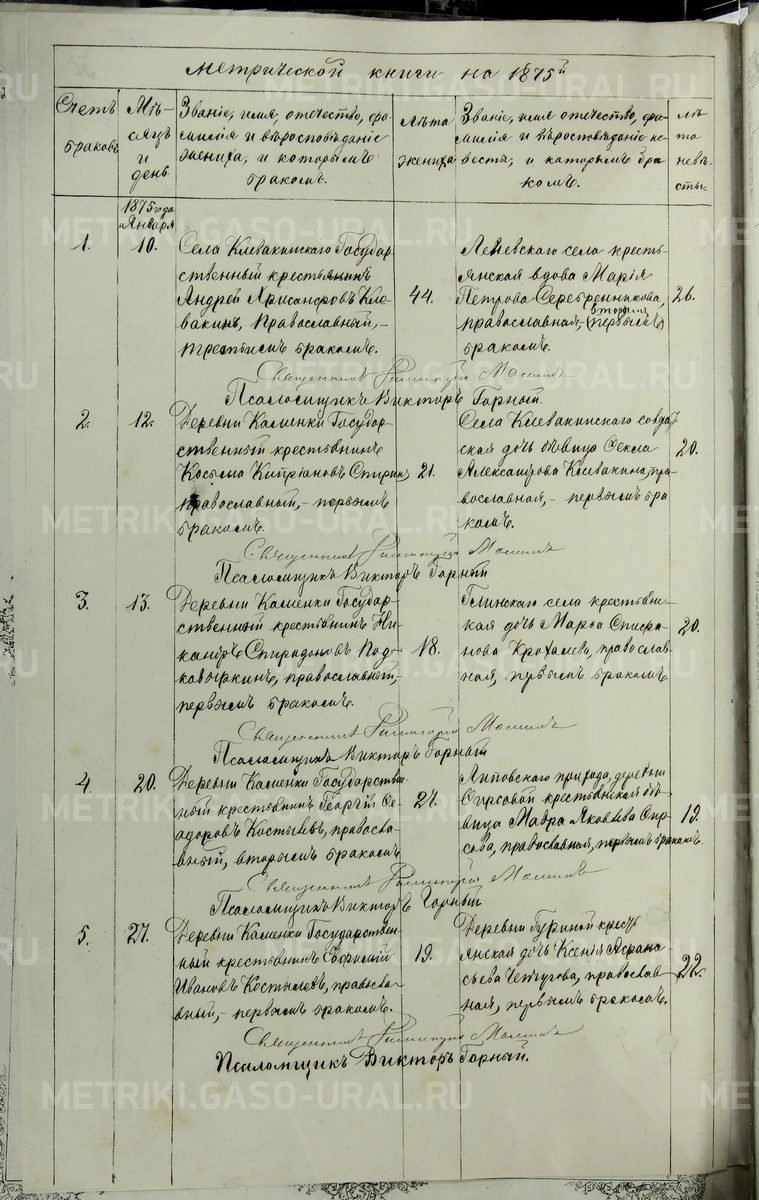 Метрической книги на 1875й
Счетъ браковъ
Мѣсяцъ и день
Званіе, имя, отечество, фамилія и вѣроисповѣданіе жениха, и которымъ бракомъ.
Лѣта жениха
Званіе, имя отечество, фамилія и вѣроисповѣданіе невѣсты, и которымъ бракомъ.
Лѣта невѣсты.
1875 года
Января
1.
10.
Села Клевакинскаго Государ-
ственный крестьянинъ
Андрей Хрисанфовъ Кле-
вакинъ, Православный,-
третьимъ бракомъ.
44.
Леневскаго села кресть-
янская вдова Марія
Петрова Серебренникова,
православная,- (первымъ) вторымъ
бракомъ.
26.
Священникъ
Псаломщикъ Викторъ Горный.
2.
12.
Деревни Каменки Государ-
ственный крестьянинъ
Косьма Кипріановъ Спирин
православный,- первымъ
бракомъ.
21.
Села Клевакинскаго солдат
ская дочь дѣвица Фекла
Александрова Клевакина, пра-
вославная,- первымъ бра
комъ.
20.
Священникъ
Псаломщикъ Викторъ Горный
3.
13.
Деревни Каменки Государ-
ственный крестьянинъ Ни-
кандръ Спиридоновъ Под-
ковыркинъ, православный,
первымъ бракомъ.
18.
Глинскаго села крестьянс-
кая дочь Марѳа
Крохалева, православ-
ная, первымъ бракомъ
20.
Священникъ
Псаломщикъ Викторъ Горный
4.
20.
Деревни Каменки Государствен
ный крестьянинъ Георгій Ѳе-
одоровъ Костылевъ, правосла-
вный, вторымъ бракомъ
27.
Липовскаго прихода, деревни
Фирсовой крестьянская дѣ-
вица Мавра Яковлева Фир-
сова, православная, первымъ бракомъ.
19.
Священникъ
Псаломщикъ Викторъ Горный
5.
27.
Деревни Каменки Государствен-
ный крестьянинъ Евфимій
Ивановъ Костылевъ, правосла-
вный,- первымъ бракомъ.
19.
Деревни Гуриной кресть
янская дочь Ксенія Афана-
сьева Чепчугова, православ-
ная, первымъ бракомъ.
22.
Священникъ
Псаломщикъ Викторъ Горный.
METRIKI.GASO-URAL.RU